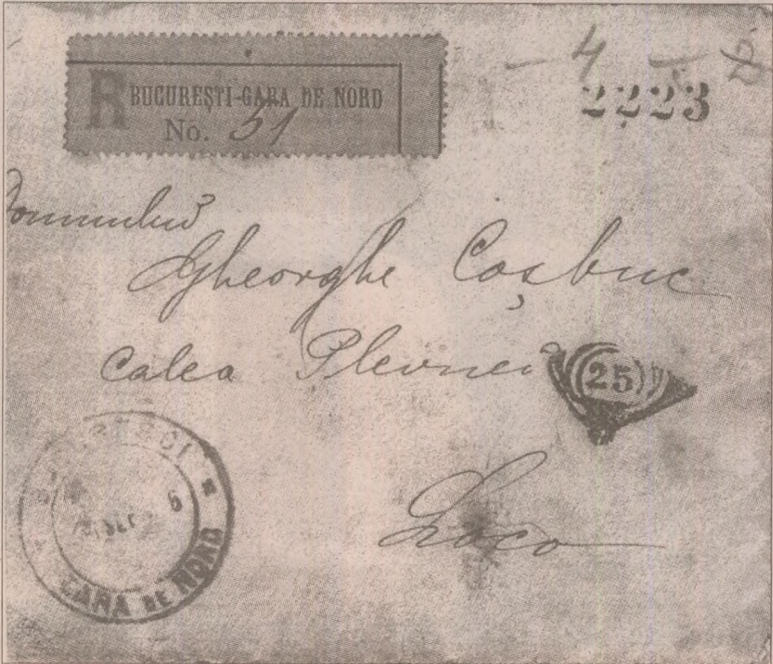 R BUCUREȘTI-GARA DE NORD
No. 51
4
2223
Domnului
Gheorghe Coșbuc
Calea Plevnei
25
Loco
GARA DE NORD